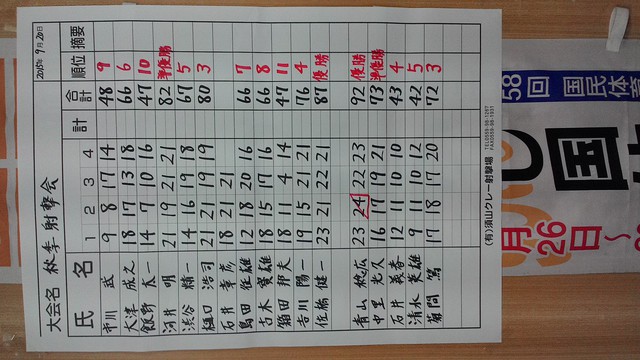 2015年9月20日
大会名 秋季射撃会
氏名 1 2 3 4 計 合計 順位 摘要
市川 武 9 8 17 14 48 9
大津 成之 18 17 13 18 66 6
飯野 太一 14 7 10 16 47 10
河井 明 21 19 21 21 82 準優勝
渋谷 精一 14 16 19 18 67 5
樋口 浩司 21 21 19 19 80 3
石井 孝彦 18 21 21
島田 征雄 12 18 20 16 66 7
古木 寶雄 18 15 17 16 66 8
稲田 邦夫 18 11 4 14 47 11
吉川 陽一 19 15 21 21 76 4
佐橋 健一 23 21 22 21 87 優勝
青山 稔広 23 24 22 23 92 優勝
中里 光久 16 17 19 21 73 準優勝
石井 義春 12 11 10 10 43 4
清水 英雄 9 11 10 12 42 5
篤 17 18 17 20 72 3
(有)須山クレー射撃場
58回 国民体育
国
月26日~